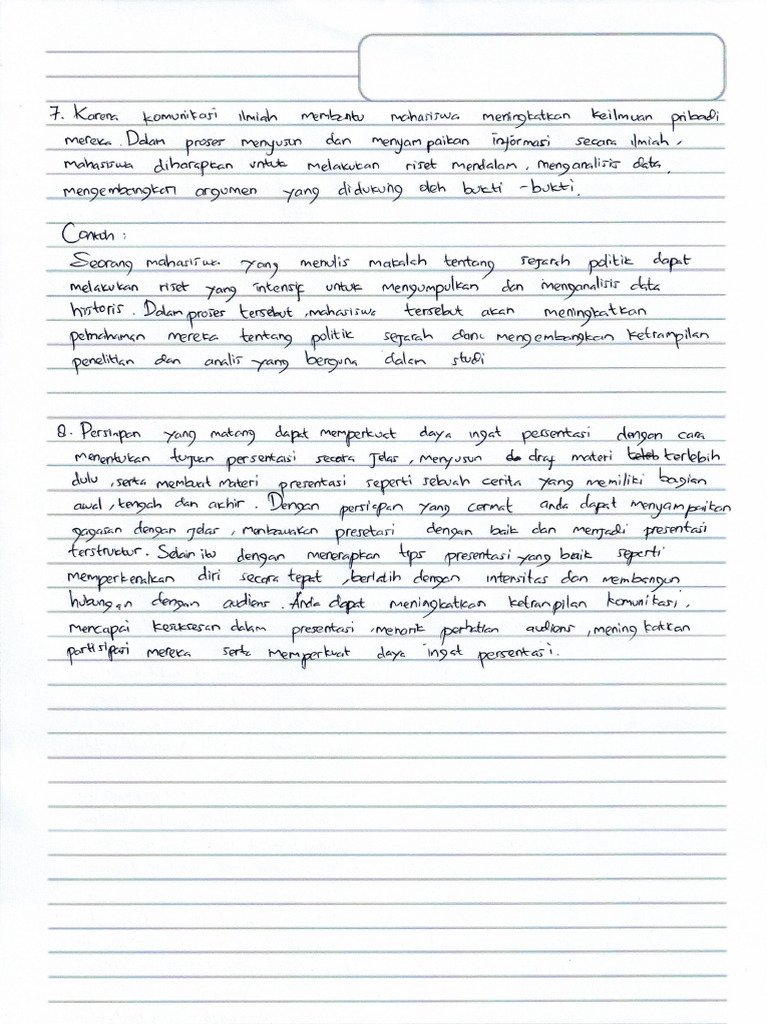 7. Karena komunikasi ilmiah membantu mahasiswa meningkatkan keilmuan pribadi
mereka. Dalam proses menyusun dan menyampaikan informasi secara ilmiah,
mahasiswa diharapkan untuk melakukan riset mendalam, menganalisis data,
mengembangkan argumen yang didukung oleh bukti-bukti.
Contoh :
Seorang mahasiswa yang menulis makalah tentang sejarah politik dapat
melakukan riset yang intensif untuk mengumpulkan dan menganalisis data
historis. Dalam proses tersebut, mahasiswa tersebut akan meningkatkan
pemahaman mereka tentang politik sejarah dan mengembangkan ketrampilan
penelitian dan analis yang berguna dalam studi
8. Persiapan yang matang dapat memperkuat daya ingat persentasi dengan cara
menentukan tujuan persentasi secara jelas, menyusun draf materi terlebih
dulu, serta membuat materi presentasi seperti sebuah cerita yang memiliki bagian
awal, tengah dan akhir. Dengan persiapan yang cermat anda dapat menyampaikan
gagasan dengan jelas, presetasi dengan baik dan menjadi presentasi
terstructur. Selain itu dengan menerapkan tips presentasi yang baik seperti
memperkenalkan diri secara tepat, berlatih dengan intensitas dan membangun
hubungan dengan audiens. Anda dapat meningkatkan ketrampilan komunikasi,
mencapai kesuksesan dalam presentasi, menarik perhatian audiens, meningkatkan
partisipasi mereka serta memperkuat daya ingat persentasi.